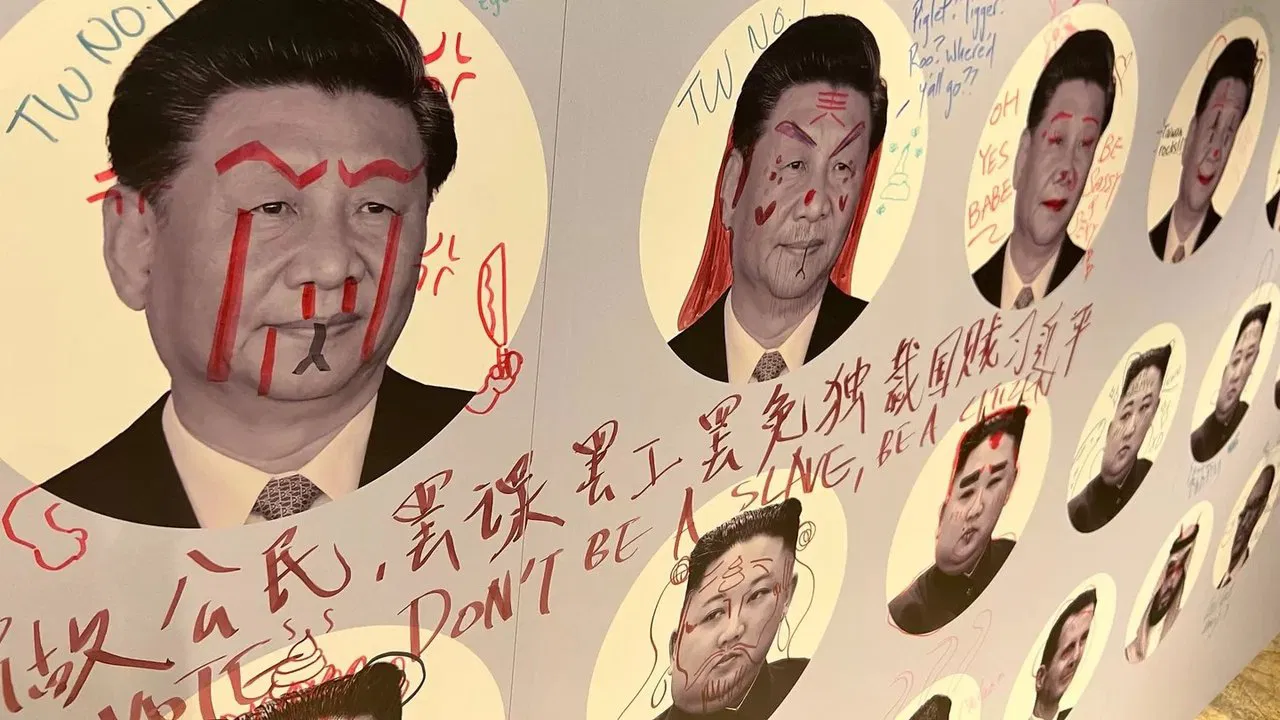 TW NO.1
TW NO.1
Piglet? Tigger?
Roo? Where'd
y'all go??
OH
YES
BABE
BE
- Taiwan
rocks!!
做公民，罢课罢工罢免独裁国贼习近平
VOTE DON'T BE A SLAVE, BE A CITIZEN